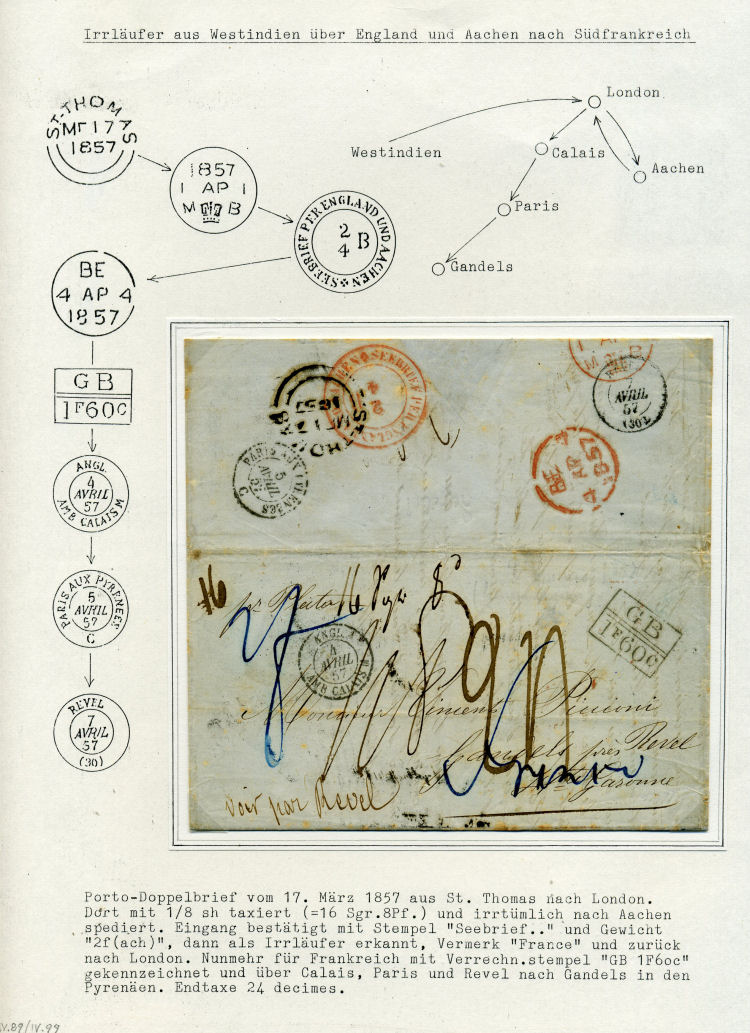 Irrläufer aus Westindien über England und Aachen nach Südfrankreich
ST-THOMAS
MR 17
1857
1857
1 AP 1
M B
SEEBRIEF PER ENGLAND UND AACHEN
2
4 B
London
Westindien
Calais
Aachen
Paris
Gandels
BE
4 AP 4
1857
GB
1F60C
ANGL.
4
AVRIL
57
AMB CALAIS M
PARIS AUX PYRENEES
5
AVRIL
57
C
REVEL
7
AVRIL
57
(30)
SEEBRIEF PER ENGLA
2
4
7
AVRIL
57
(30)
PARIS AUX PYRENEES
5
AVRIL
57
C
BE
4 AP 4
1857
16
GB
1F60C
ANGL.
4
AVRIL
57
AMB CALAIS M
Monsieur Vincent Piccioni
Gandels près Revel
Hte Garonne
voir par Revel
Porto-Doppelbrief vom 17. März 1857 aus St. Thomas nach London.
Dort mit 1/8 sh taxiert (=16 Sgr.8Pf.) und irrtümlich nach Aachen
spediert. Eingang bestätigt mit Stempel "Seebrief.." und Gewicht
"2f(ach)", dann als Irrläufer erkannt, Vermerk "France" und zurück
nach London. Nunmehr für Frankreich mit Verrechn.stempel "GB 1F6oc"
gekennzeichnet und über Calais, Paris und Revel nach Gandels in den
Pyrenäen. Endtaxe 24 decimes.
IV.89/IV.99